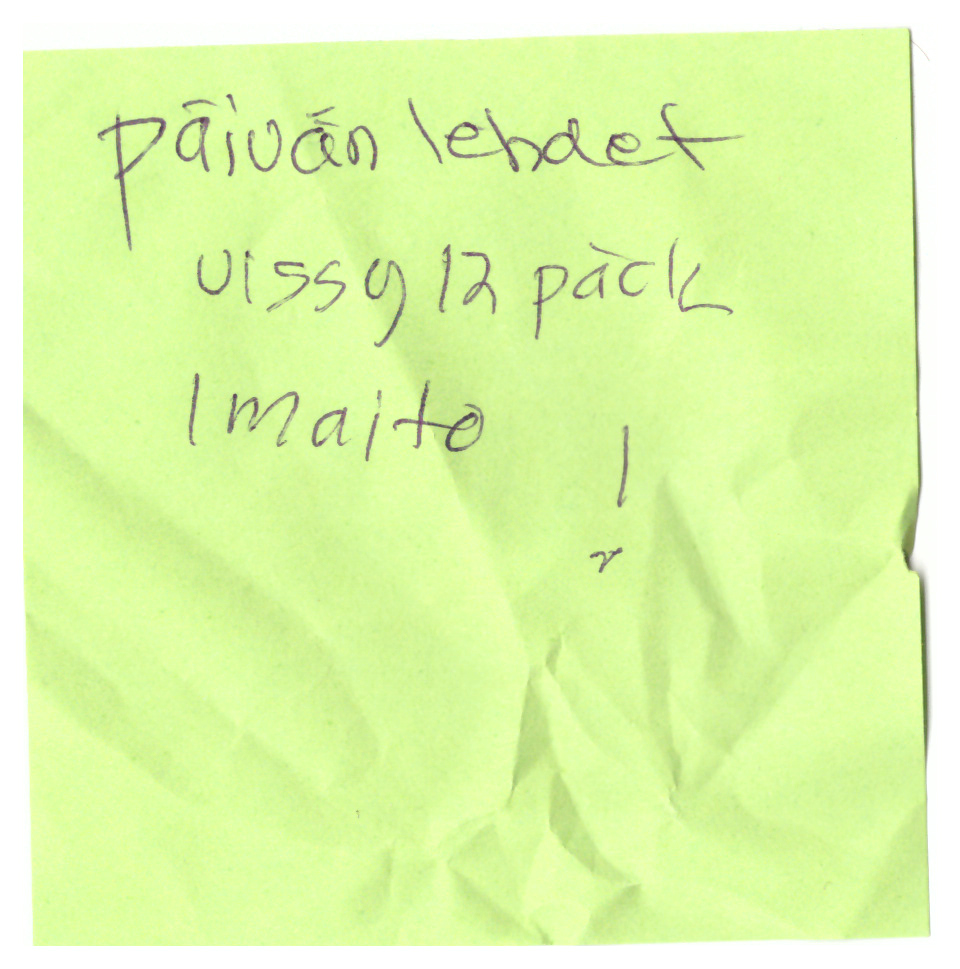 päivän lehdet
vissy 12 päck
1 maito
!